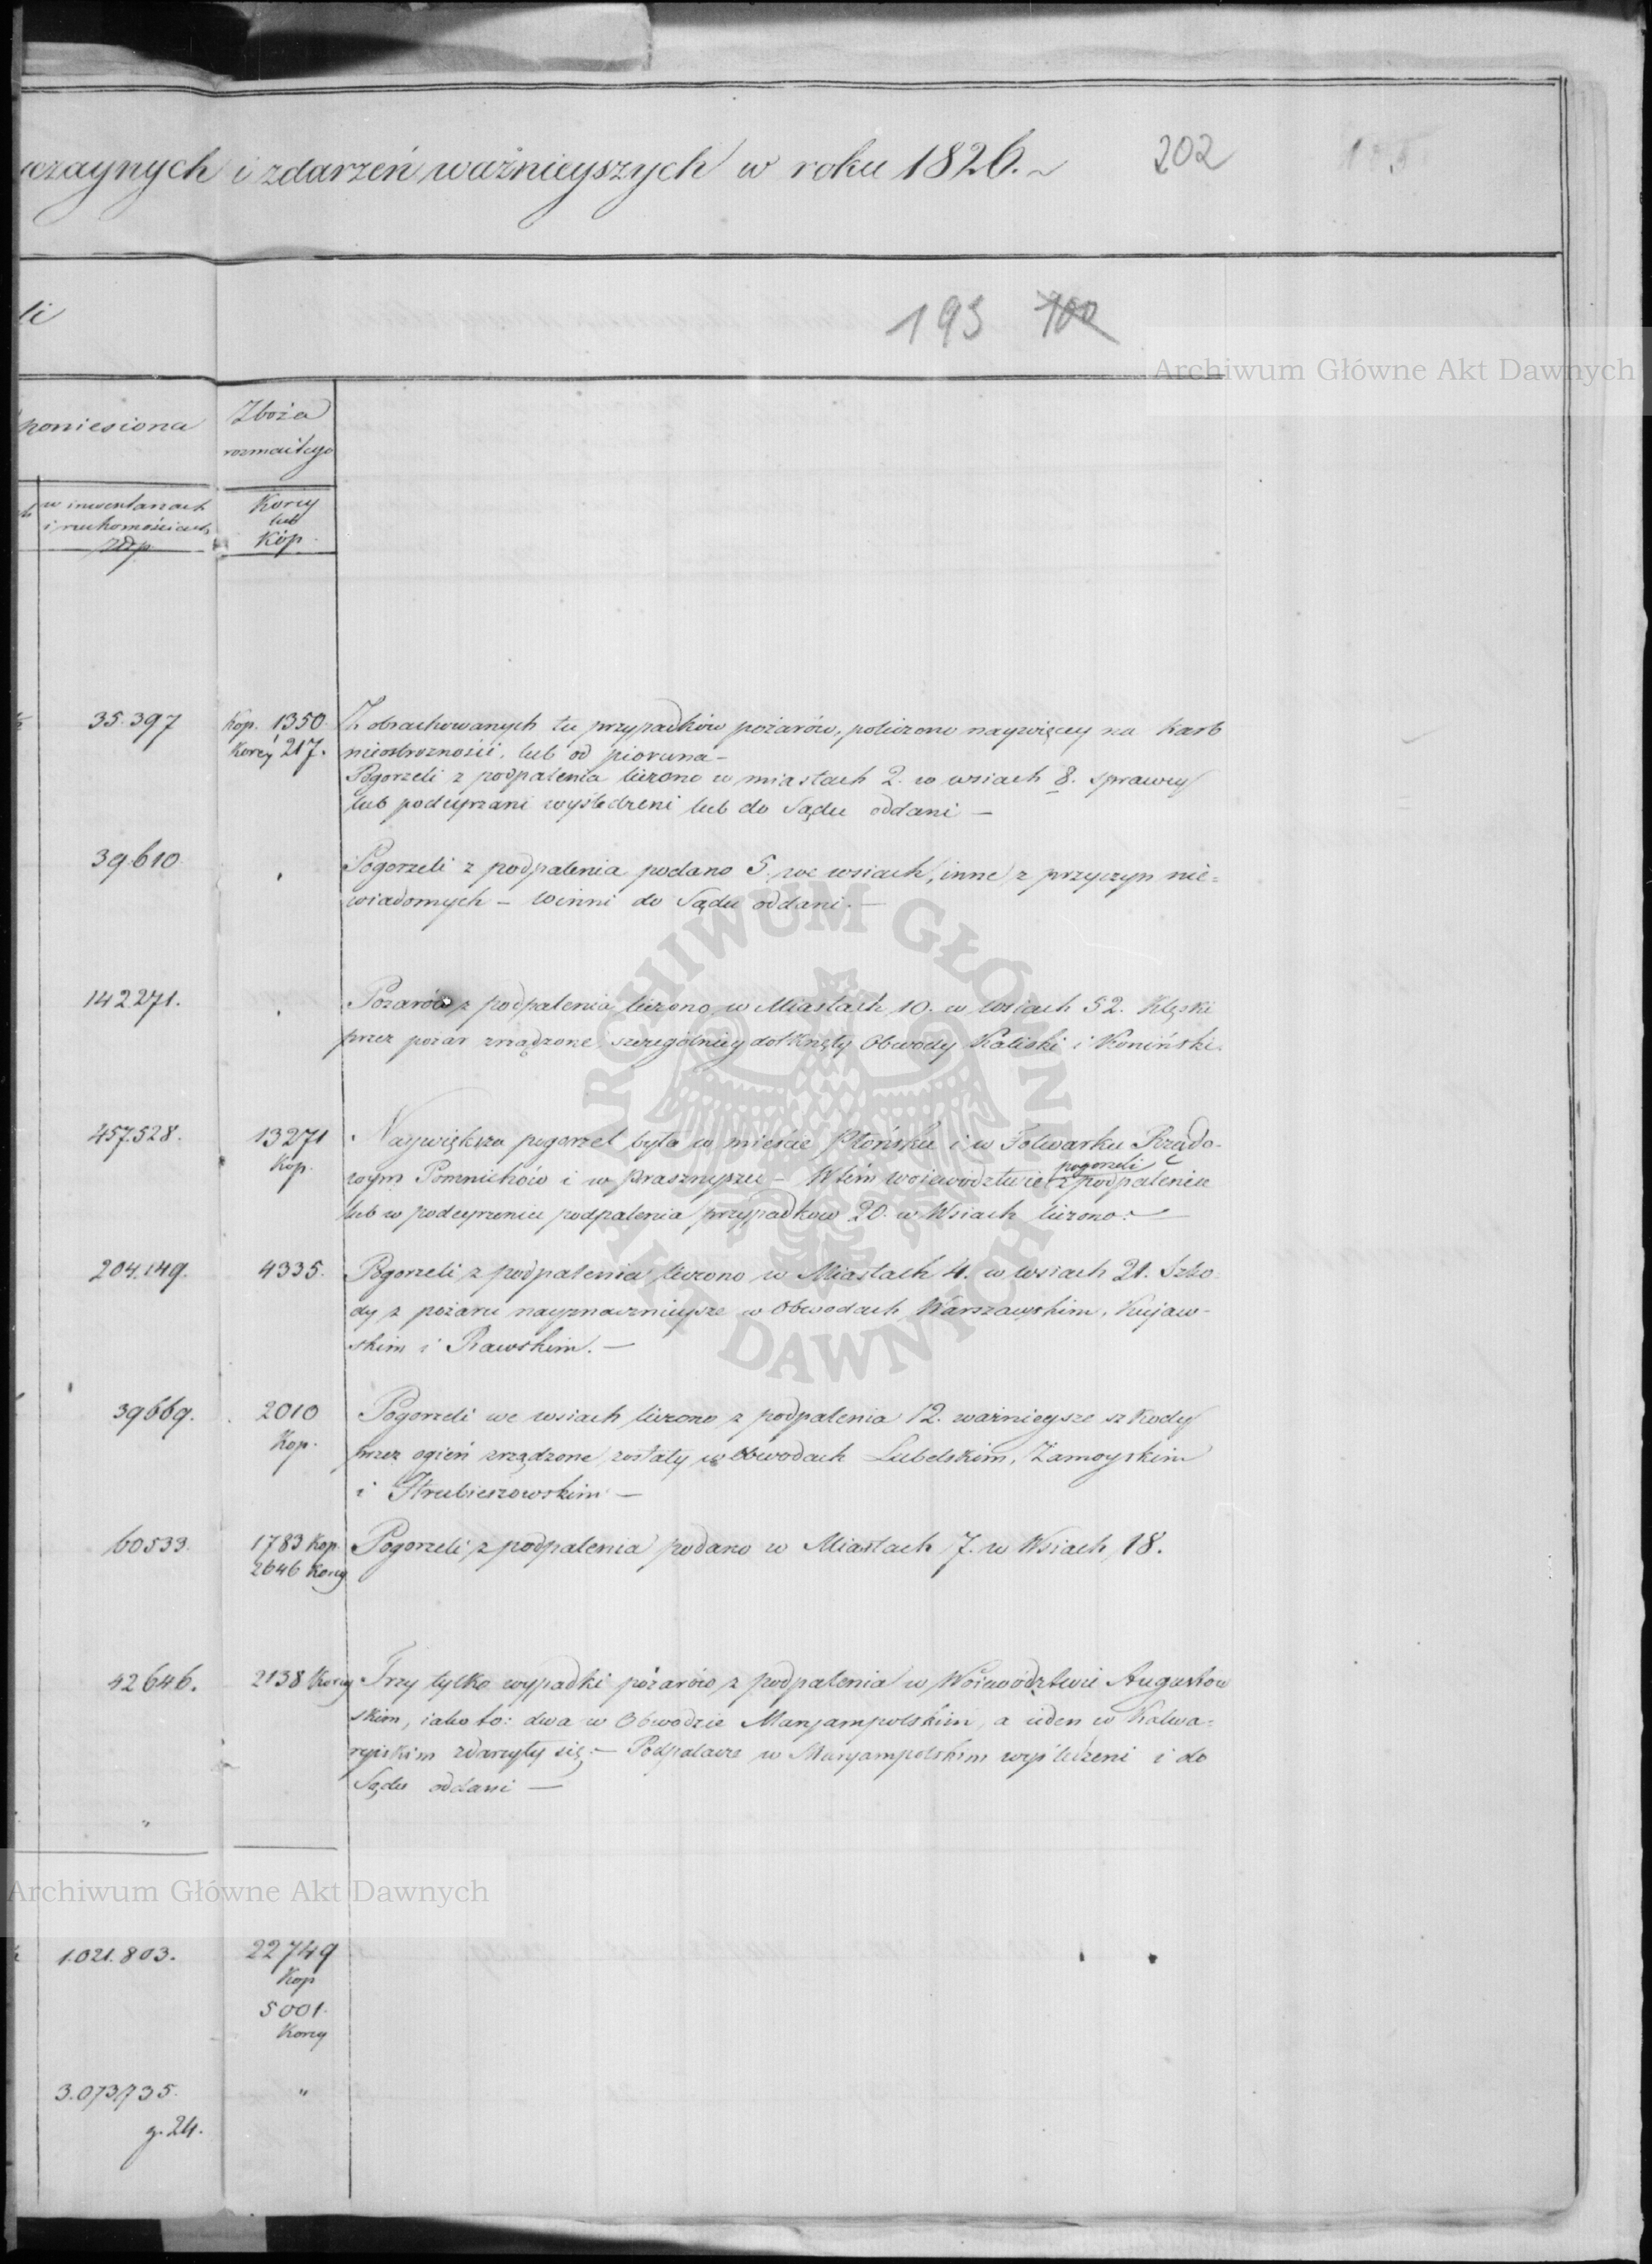 wczaynych i zdarzeń ważnieyszych w roku 1826.
202
li
193 100
Archiwum Główne Akt Dawnych
poniesiona
Zboża
rozmaitego
w inwentarzach
i ruchomościach
Złłp.
Korcy
lub
Kóp.
35.397
Kop. 1350
Korcy 217.
Z obrachowanych tu przypadków pożarów, policzono naywięcey na Karb
nieostrozności, lub od pioruna –
Pogorzeli z podpalenia liczono w miastach 2. w wsiach 8. sprawcy
lub podeyrzani wyśledzeni lub do Sądu oddani –
39.610
Pogorzeli z podpalenia podano 5 we wsiach, inne z przyczyn nie=
wiadomych – winni do Sądu oddani. –
142.271.
Pozarów z podpalenia liczono w Miastach 10. w wsiach 52. Klęski
przez pozar zrządzone szczególniey dotknęły Obwody Kaliski i Koniński.
457.528.
13271
Kop.
Naywiększa pogorzel była w mieście Płońsku i w Folwarku Rządo-
wym Pomnichów i w Prasznyszu – W tém woiewództwie pogorzeli z podpalenia
lub w podeyrzeniu podpalenia przypadkow 20. w Wsiach liczono. –
204.149.
4335.
Pogorzeli z podpalenia liczono w Miastach 4. w wsiach 21. Szko
dy z pożaru nayznacznieysze w Obwodach Warszawskim, Kujaw-
skim i Rawskim. –
39669.
2010
Kop.
Pogorzeli we wsiach liczono z podpalenia 12. ważnieysze szkody
przez ogień zrządzone zostały w Obwodach Lubelskim, Zamoyskim
i Hrubieszowskim –
60533.
1783 Kop.
2646 Korcy
Pogorzeli z podpalenia podano w Miastach 7. w Wsiach 18.
42646.
2138 Korcy
Trzy tylko wypadki pożarów z podpalenia w Woiewództwie Augustow
skim, iako to: dwa w Obwodzie Maryampolskim, a ieden w Kalwa-
ryiskim zdarzyły się. – Podpalacze w Maryampolskim wyśledzeni i do
Sądu oddani –
"
Archiwum Główne Akt Dawnych
1.021.803.
22749
Kop
5001.
Korcy
3.073.735.
g. 24.
"
ARCHIWUM GŁÓWNE AKT DAWNYCH